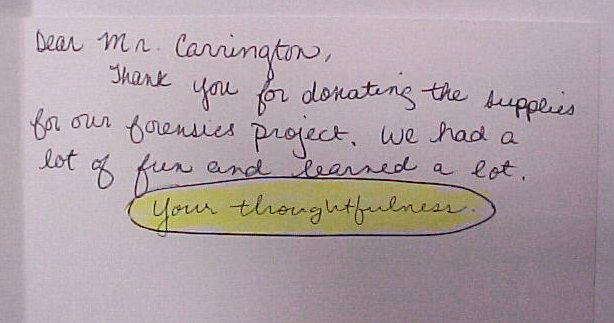 Dear Mr. Carrington,
Thank you for donating the supplies
for our forensics project. We had a
lot of fun and learned a lot.
Your thoughtfulness.